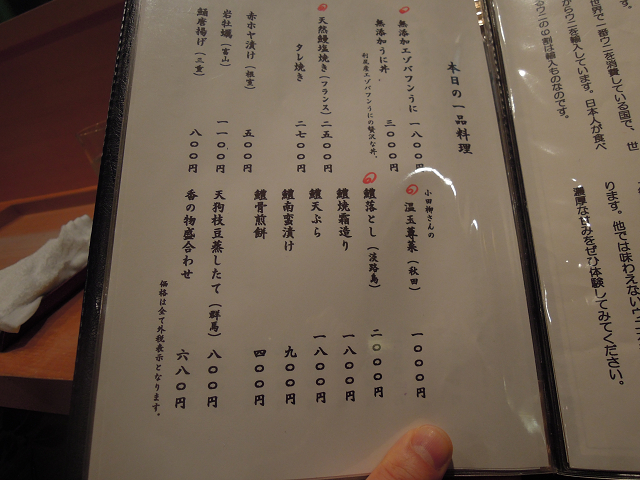 本日の一品料理
無添加エゾバフンうに 一八〇〇円
無添加うに丼 三〇〇〇円
利尻産エゾバフンうにの贅沢な丼。
天然鰻塩焼き(フランス) 二五〇〇円
タレ焼き 二七〇〇円
赤ホヤ漬け(根室) 五〇〇円
岩牡蠣(富山) 一一〇〇円
鯒唐揚げ(三重) 八〇〇円
小田柳さんの
温玉蓴菜(秋田) 一〇〇〇円
鱧落とし(淡路島) 二〇〇〇円
鱧焼霜造り 一八〇〇円
鱧天ぷら 一八〇〇円
鱧南蛮漬け 九〇〇円
鱧骨煎餅 四〇〇円
天狗枝豆蒸したて(群馬) 八〇〇円
香の物盛合わせ 六八〇円
価格は全て外税表示となります。
世界で一番ウニを消費している国で、世
からウニを輸入しています。日本人が食べ
ウニの9割は輸入ものなのです。
ります。他では味わえないウニ
濃厚な甘みをぜひ体験してみてください。